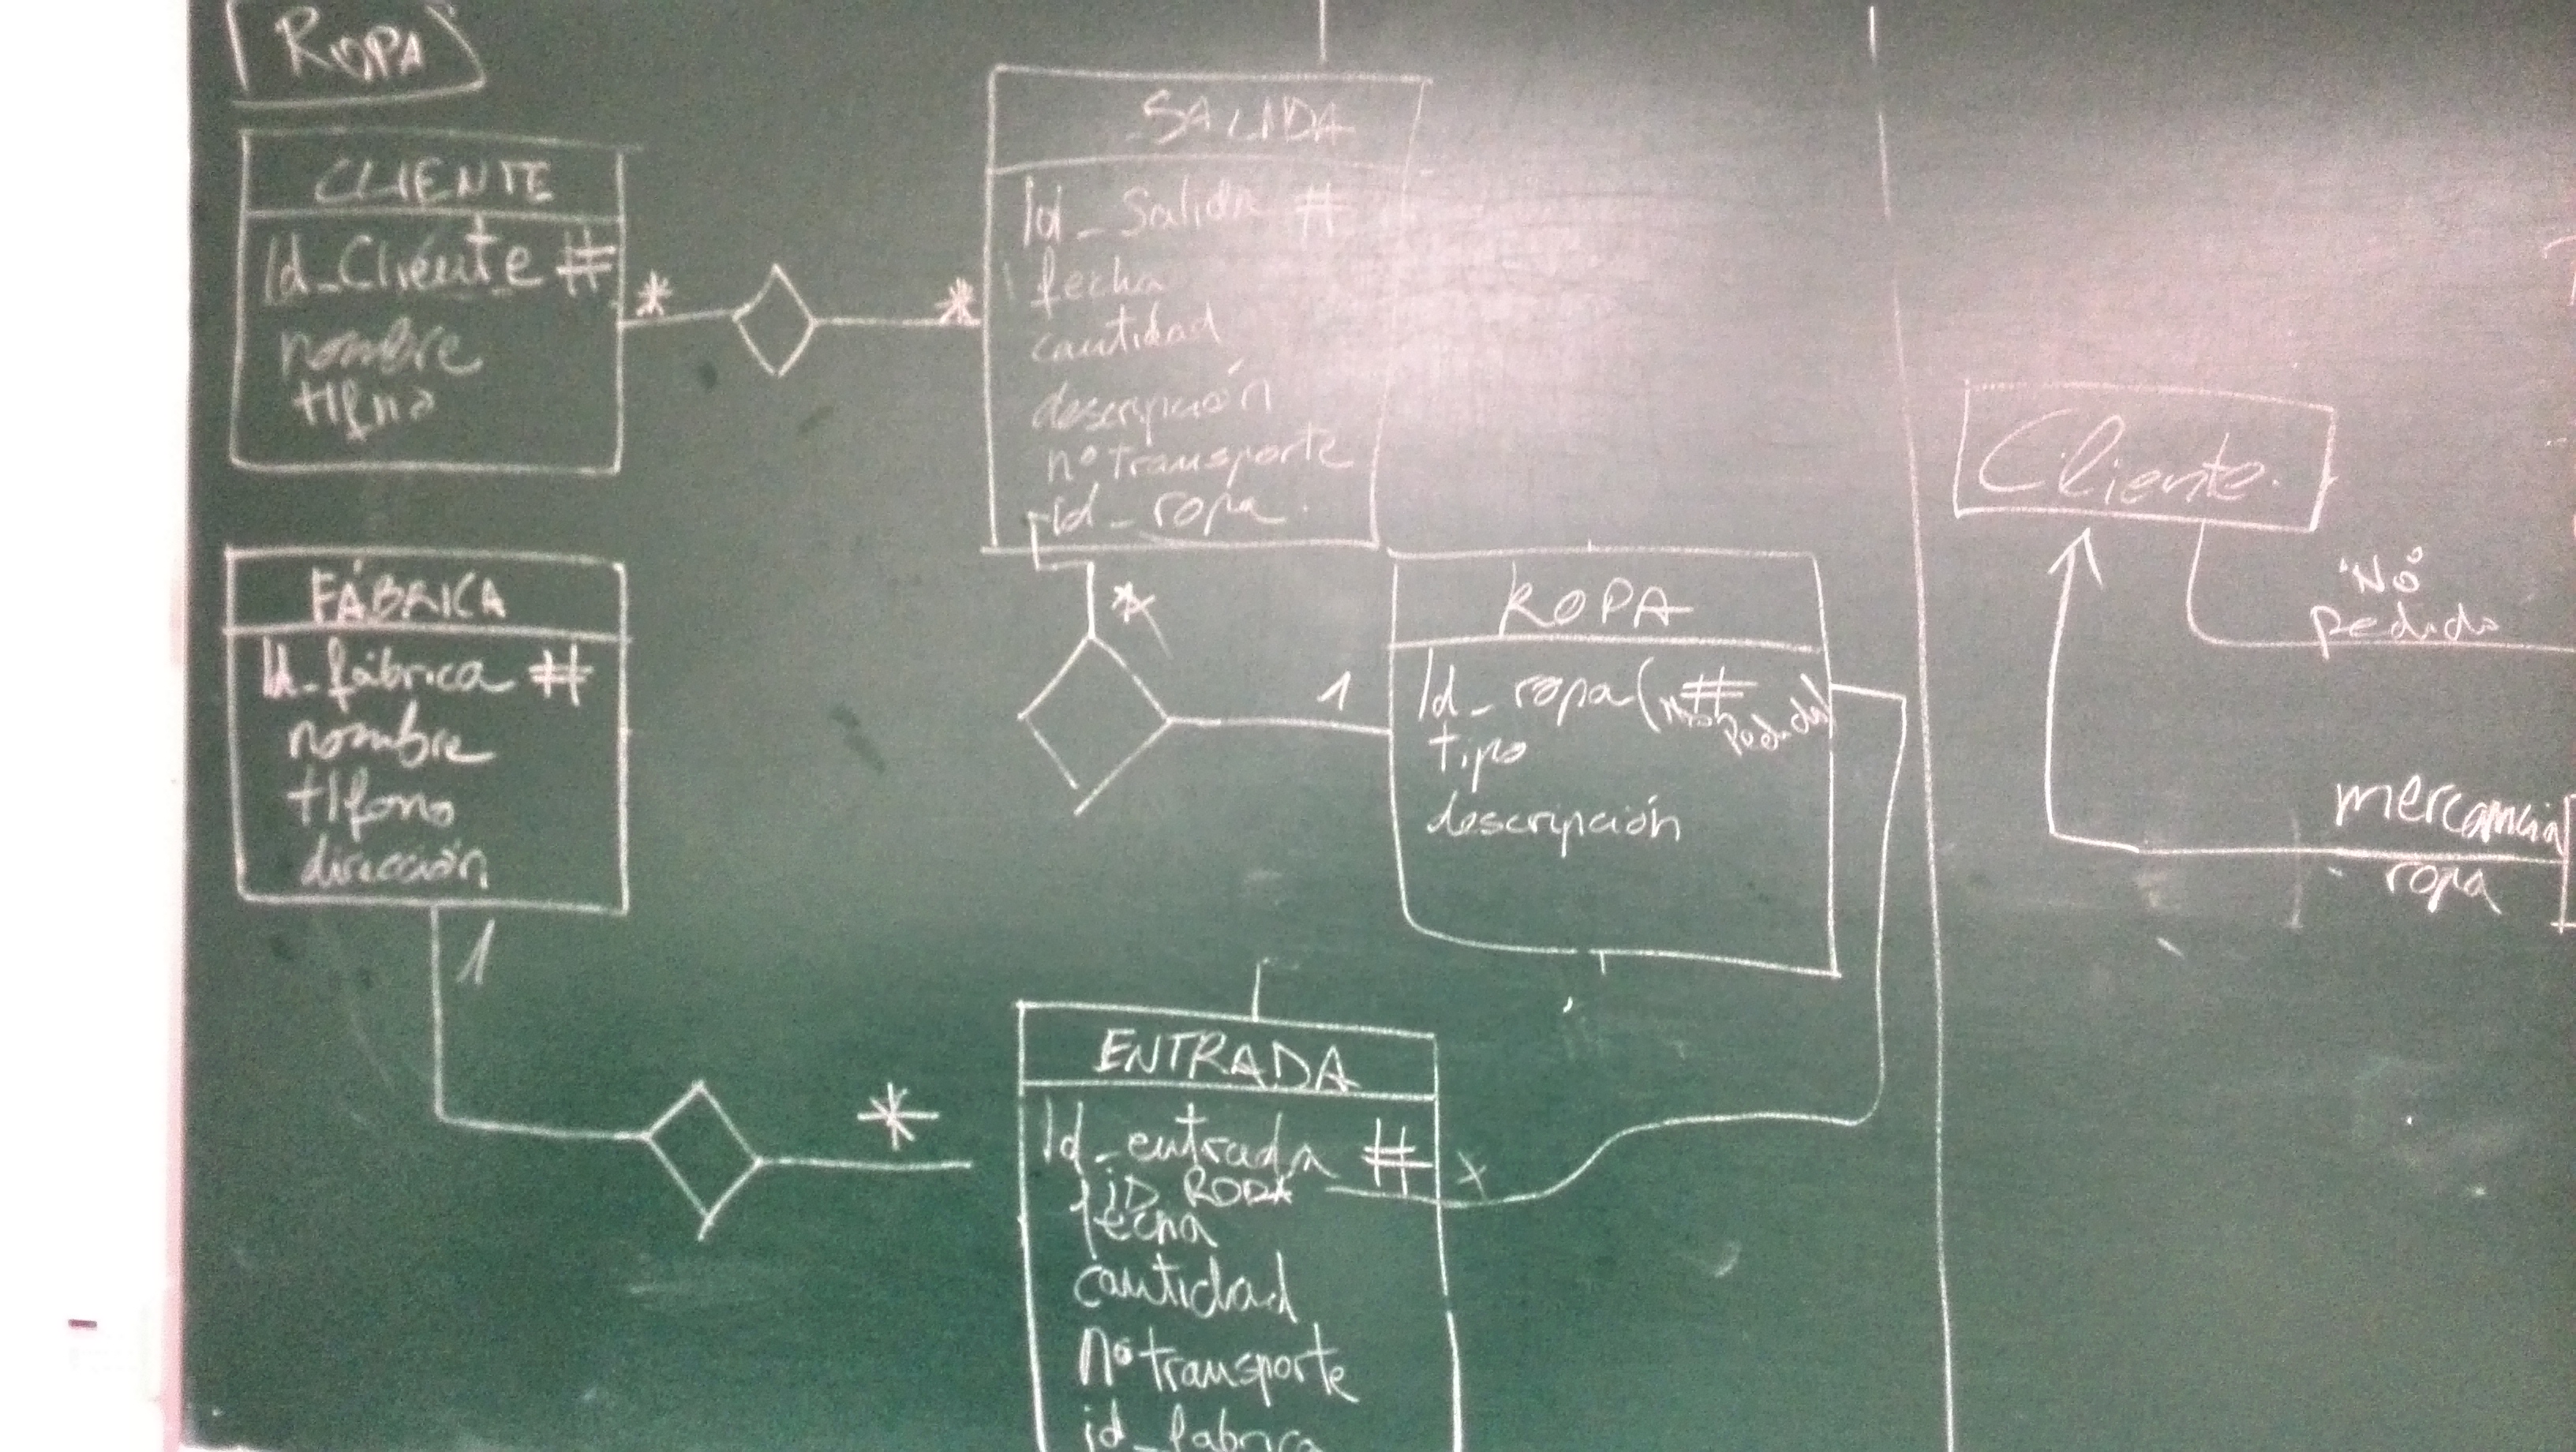 ROPA
CLIENTE
Id_Cliente #
nombre
tlfno
*
*
SALIDA
Id_Salida #
fecha
cantidad
descripción
nº transporte
id_ropa
FÁBRICA
Id_fábrica #
nombre
tlfono
dirección
1
*
*
1
ROPA
Id_ropa (#
Pedido)
tipo
descripción
ENTRADA
Id_entrada #
iD ROPA
fecha
cantidad
nº transporte
id_fabrica
*
Cliente
Nº
pedido
mercancia
ropa